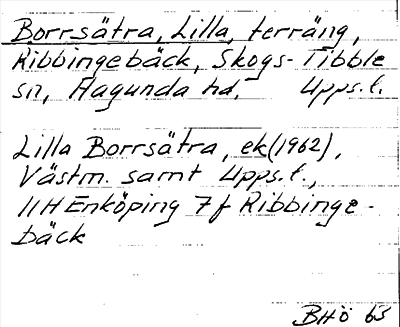 Borrsätra, Lilla, terräng,
Ribbingebäck, Skogs-Tibble
sn, Hagunda hd, Upps.l.
Lilla Borrsätra, ek (1962),
Västm. samt Upps.l.,
11H Enköping 7f Ribbinge-
bäck
BHÖ 63